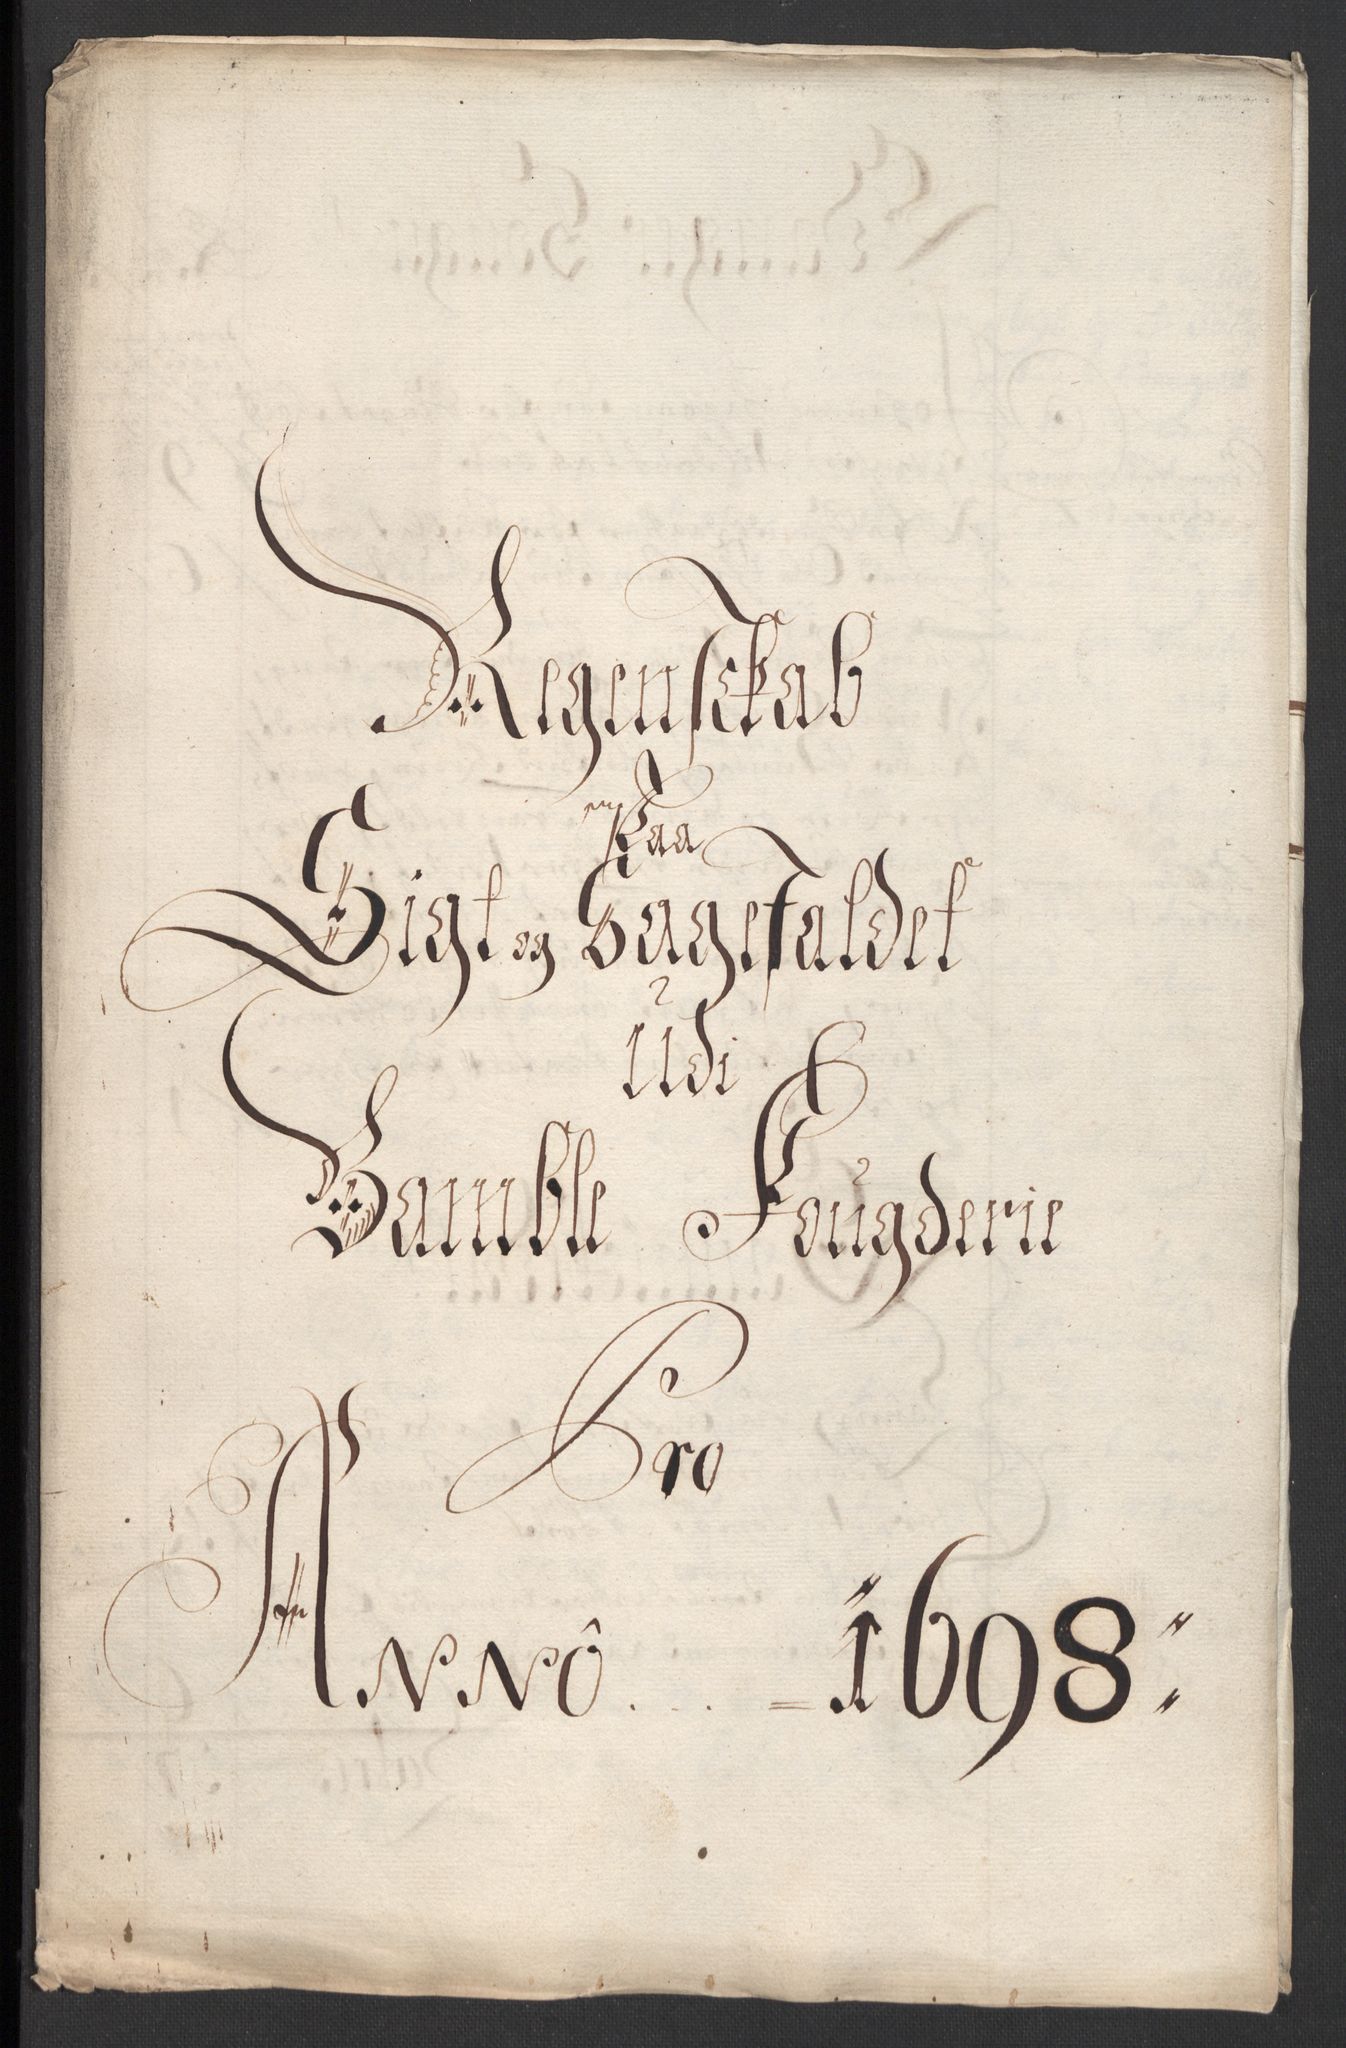 Regenskab
Paa
Sigt og Sagefaldet
Udi
Bamble Fougderie
Pro
Anno 1698